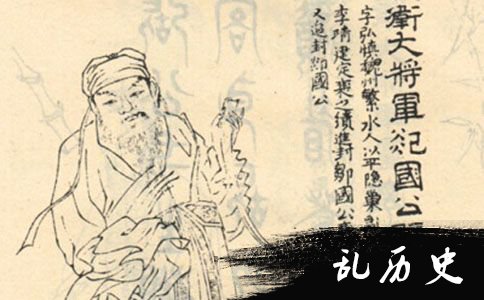 衛大將軍郯國公
字弘慎魏州繁水人以平隱巢
李靖建定襄之績進封鄒國公
又追封郯國公
乱历史